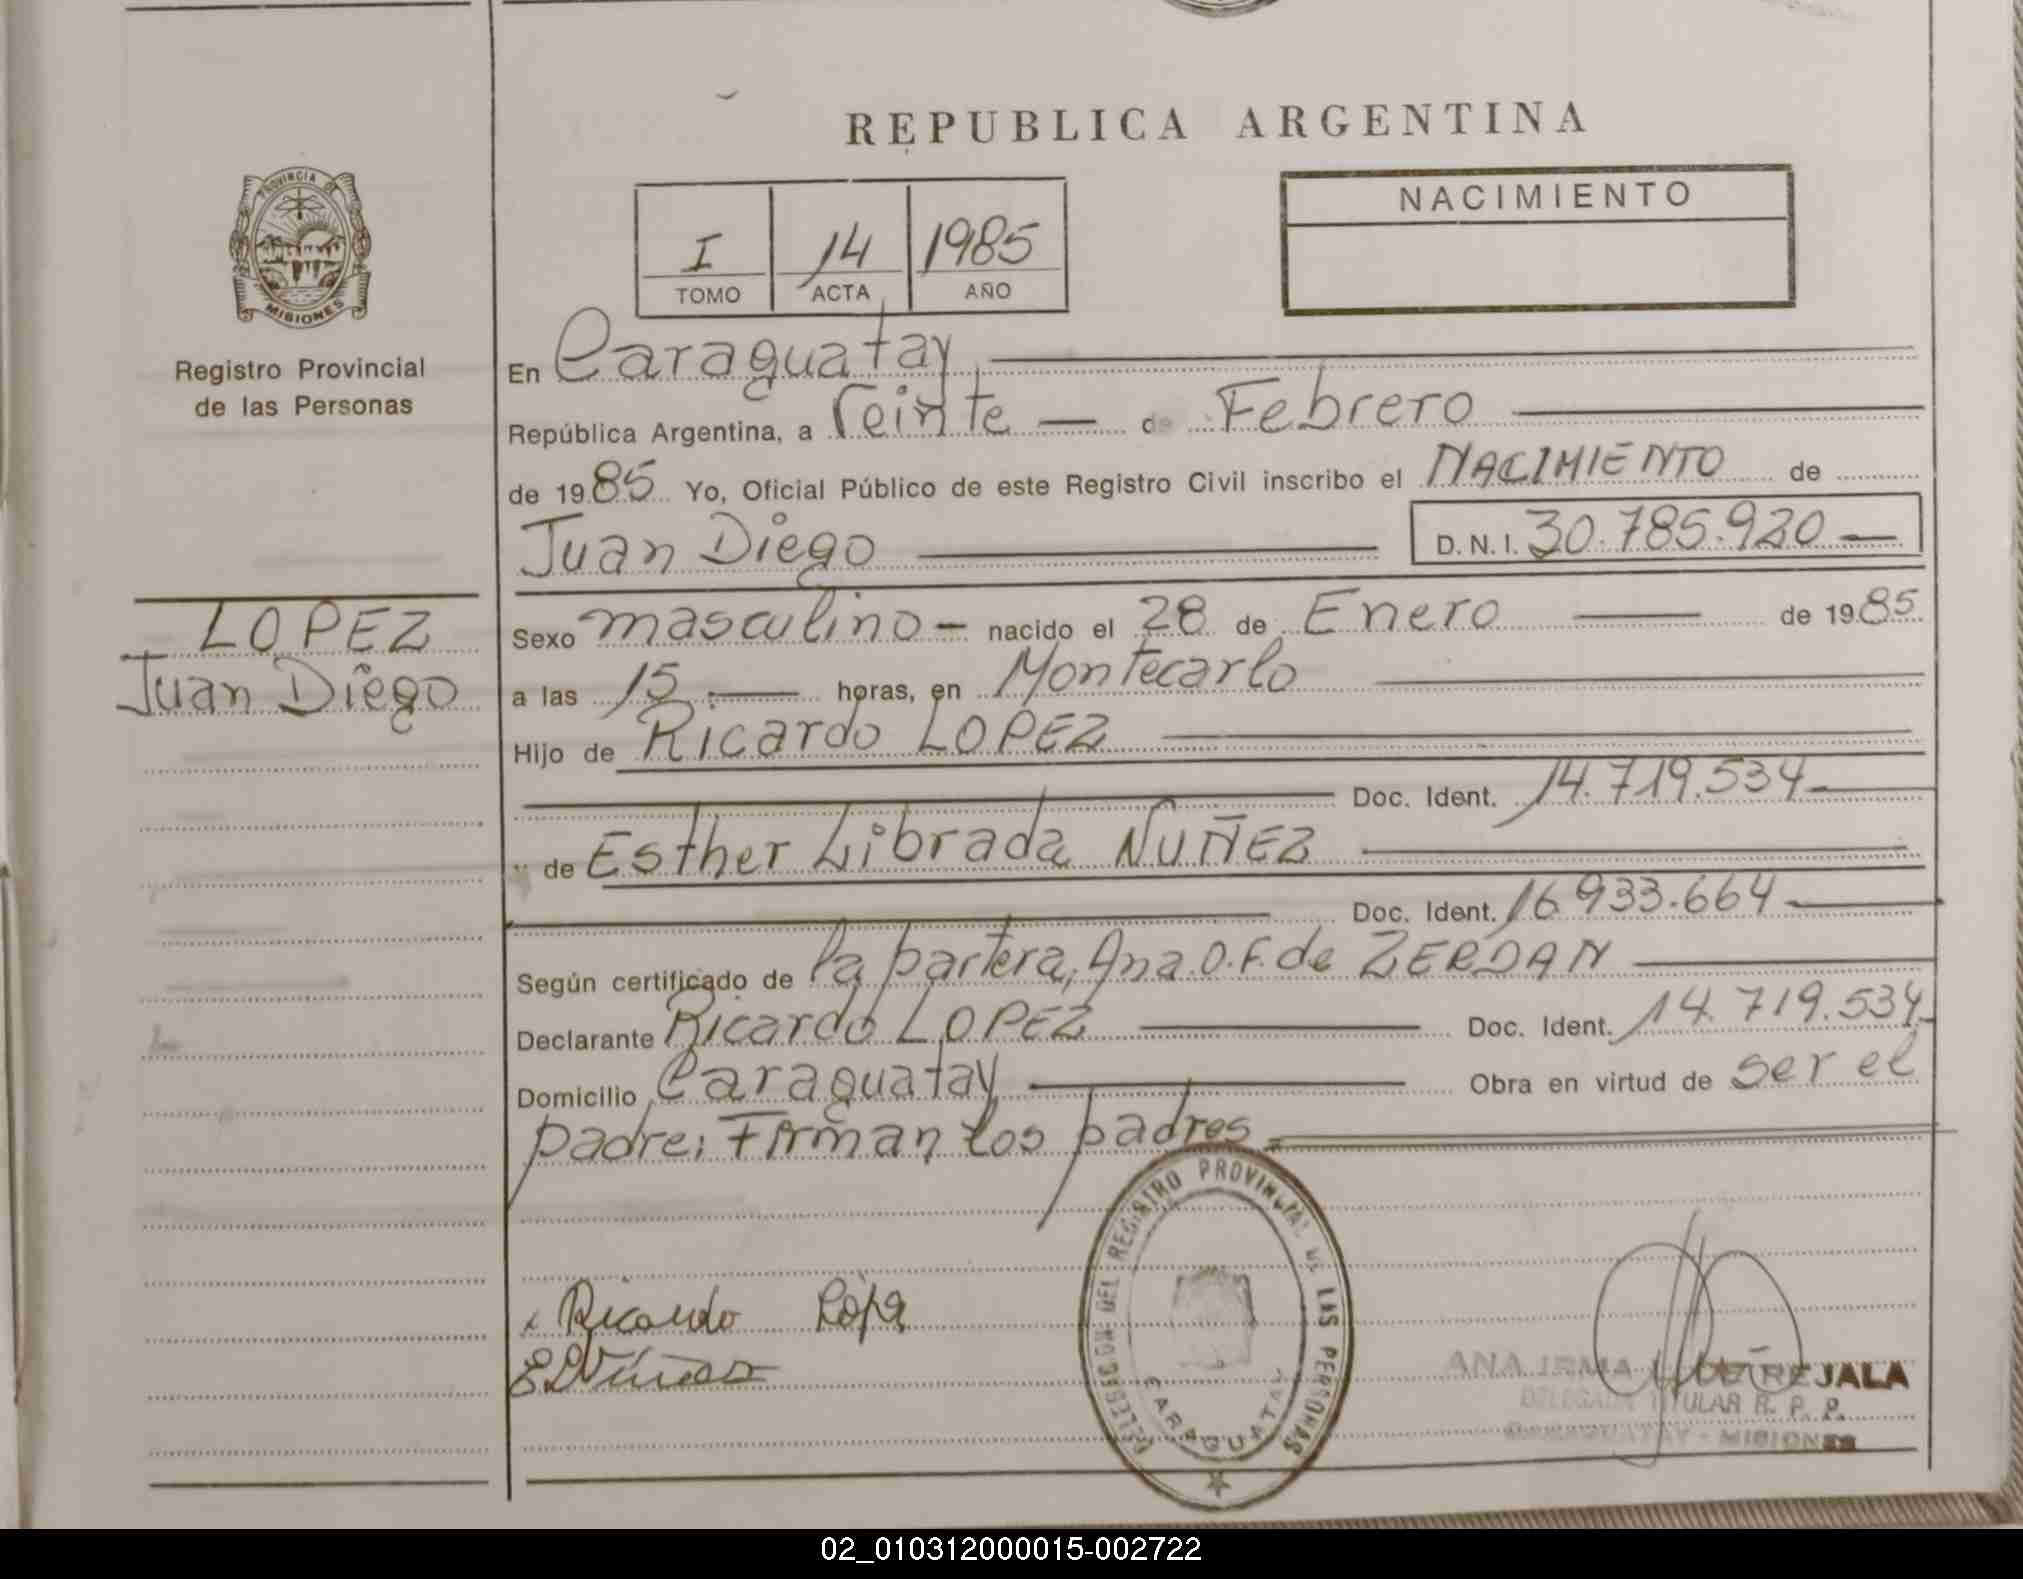 REPUBLICA ARGENTINA
PROVINCIA DE
MISIONES
Registro Provincial
de las Personas
NACIMIENTO
I 14 1985
TOMO ACTA AÑO
En Caraguatay
República Argentina, a veinte — de Febrero
de 1985 Yo, Oficial Público de este Registro Civil inscribo el NACIMIENTO de
Juan Diego D.N.I. 30.785.920 —
LOPEZ
Juan Diego
Sexo masculino — nacido el 28 de Enero — de 1985
a las 15 — horas, en Montecarlo
Hijo de Ricardo LOPEZ
Doc. Ident. 14.719.534 —
y de Esther Librada NUÑEZ
Doc. Ident. 16.933.664 —
Según certificado de la partera, Ana O.F. de ZERDAN
Declarante Ricardo LOPEZ — Doc. Ident. 14.719.534
Domicilio Caraguatay — Obra en virtud de ser el
padre; Firman los padres =
DELEGACION DEL REGISTRO PROVINCIAL DE LAS PERSONAS
CARAGUATAY
Ricardo López
E L Núñez
ANA IRMA REJALA
DELEGADA TITULAR R. P. P.
CARAGUATAY - MISIONES
02_010312000015-002722